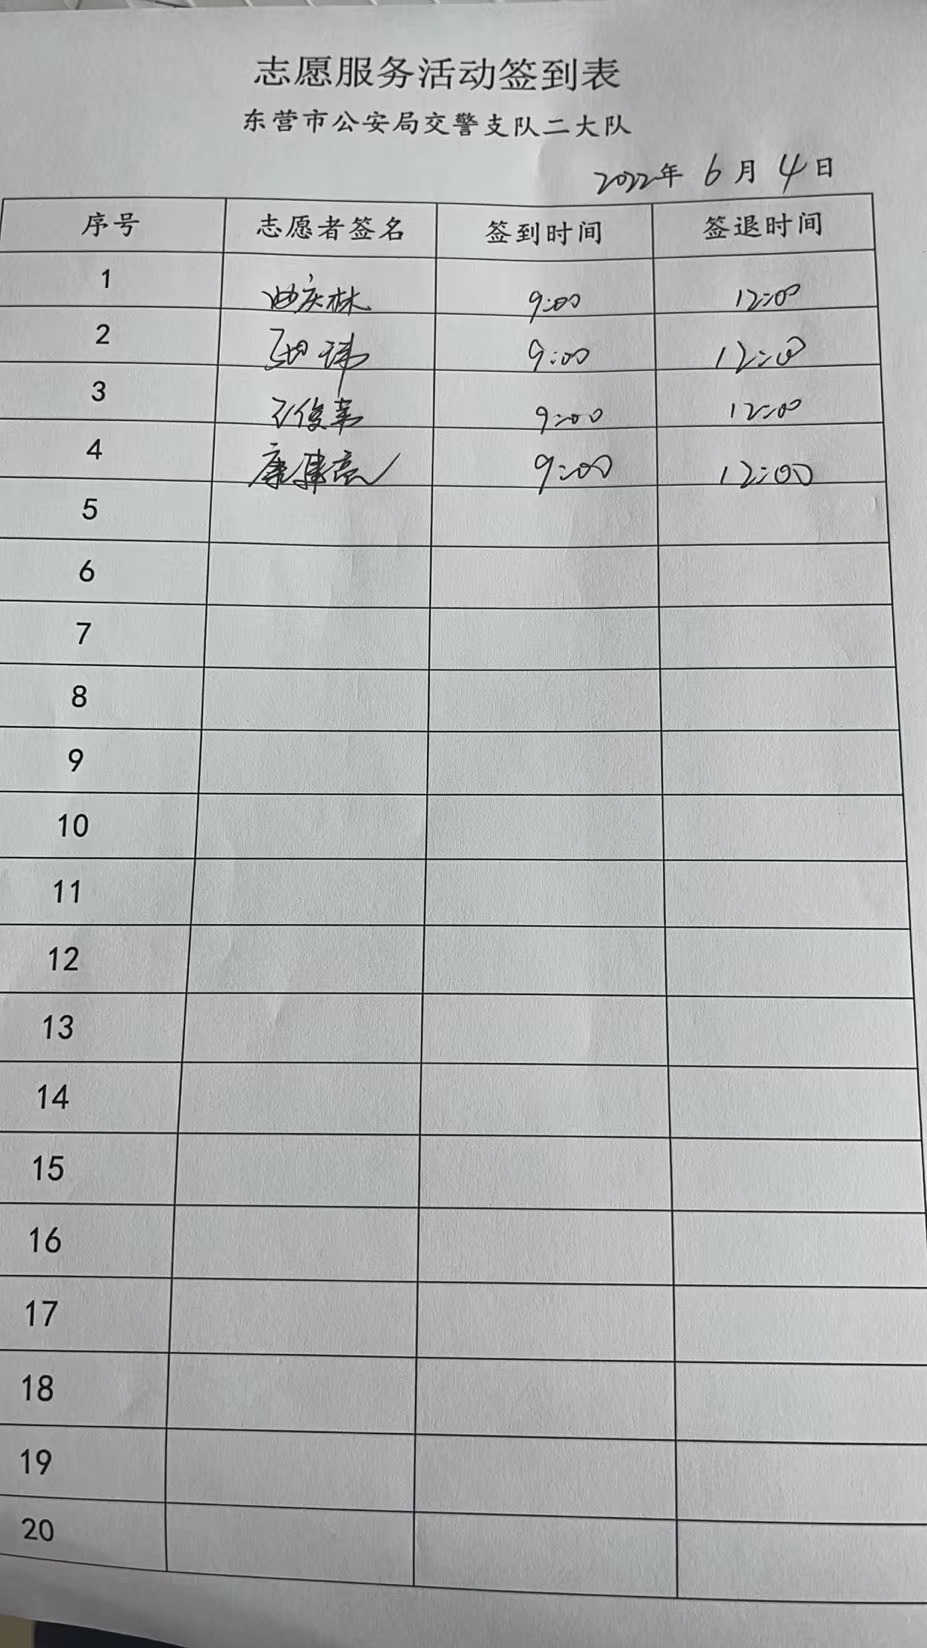 志愿服务活动签到表
东营市公安局交警支队二大队
2022年 6月 4日
序号 志愿者签名 签到时间 签退时间
1 曲庆林 9:00 12:00
2 9:00 12:00
3 王俊苇 9:00 12:00
4 康健亮 9:00 12:00
5
6
7
8
9
10
11
12
13
14
15
16
17
18
19
20